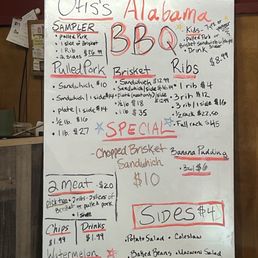 Otis's Alabama
BBQ
SAMPLER
Pulled Pork
1 slice of Brisket
1 Rib
2 sides
Kids
Pulled Pork or
Brisket Sandwich w/chips
Drink
$8.99
Pulled Pork
Sandwhich $10
Sandwhich 1 side
plate (1 side $14
1/2 lb. $16
1 lb. $27
Brisket
Sandwhich $12.99
1/2 lb $18
1 lb $35
Ribs
1 rib $4
3 rib $12
3 rib (1 side $16
1/2 rack $22.50
Full rack $45
SPECIAL
Chopped Brisket
Sandwhich
$10
Banana Pudding
3oz $6
2 meat $20
Pick two
Brisket or pulled pork
1 side
Chips Drinks
$1.99 $1.99
SIDES $4
Potato Salad Coleslaw
Watermelon
Baked Beans Macaroni Salad